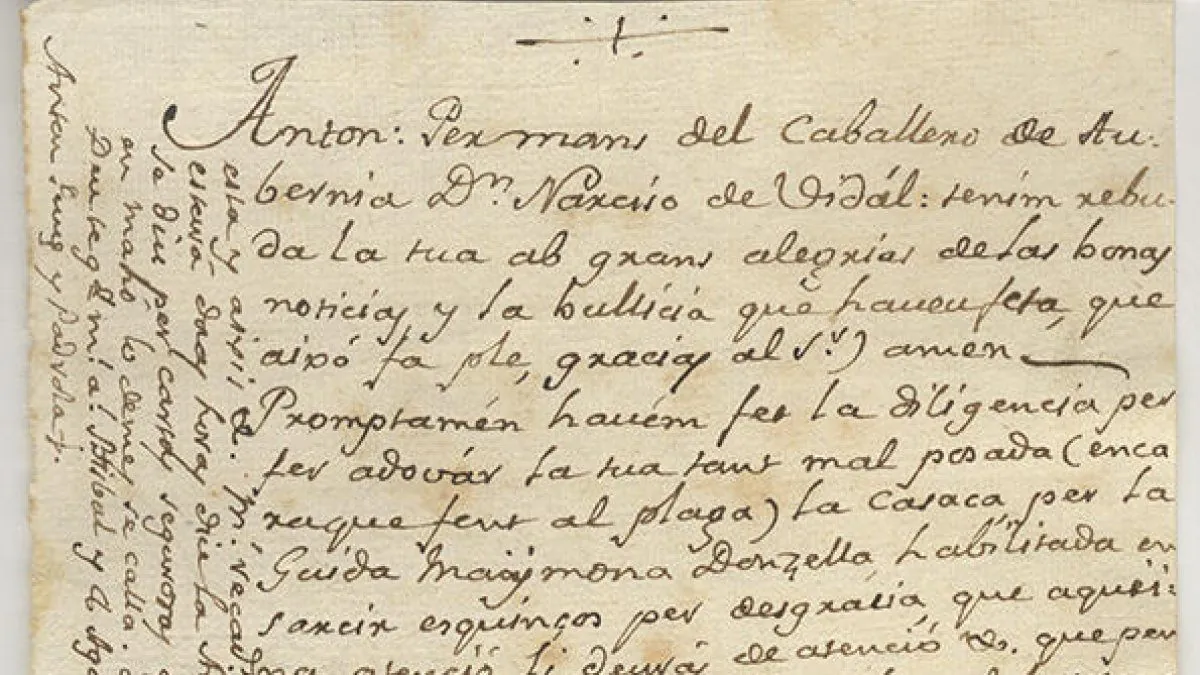 Anton: Per mans del Caballero de Au-
bernia Dn. Narciso de Vidál: tenim rebu-
da la tua ab grans alegrias de las bonas
noticias y la bullicia que haveu feta, que
aixó fa ple, gracias al Sr.) amen
Promptamén havém fet la diligencia per
fer adovár la tua tant mal posada (enca
raque fent al plaga) la Casaca per la
Guida Donzella habilitada en
sarcir esquinços per desgracia, que aquesi:
na atenció li deurás de atenció &. que per
esta y axisi &. Mi recad
estará doas horas dins la
se diu per cartas seguras
en mahó lo demes se calla.
Deu teg